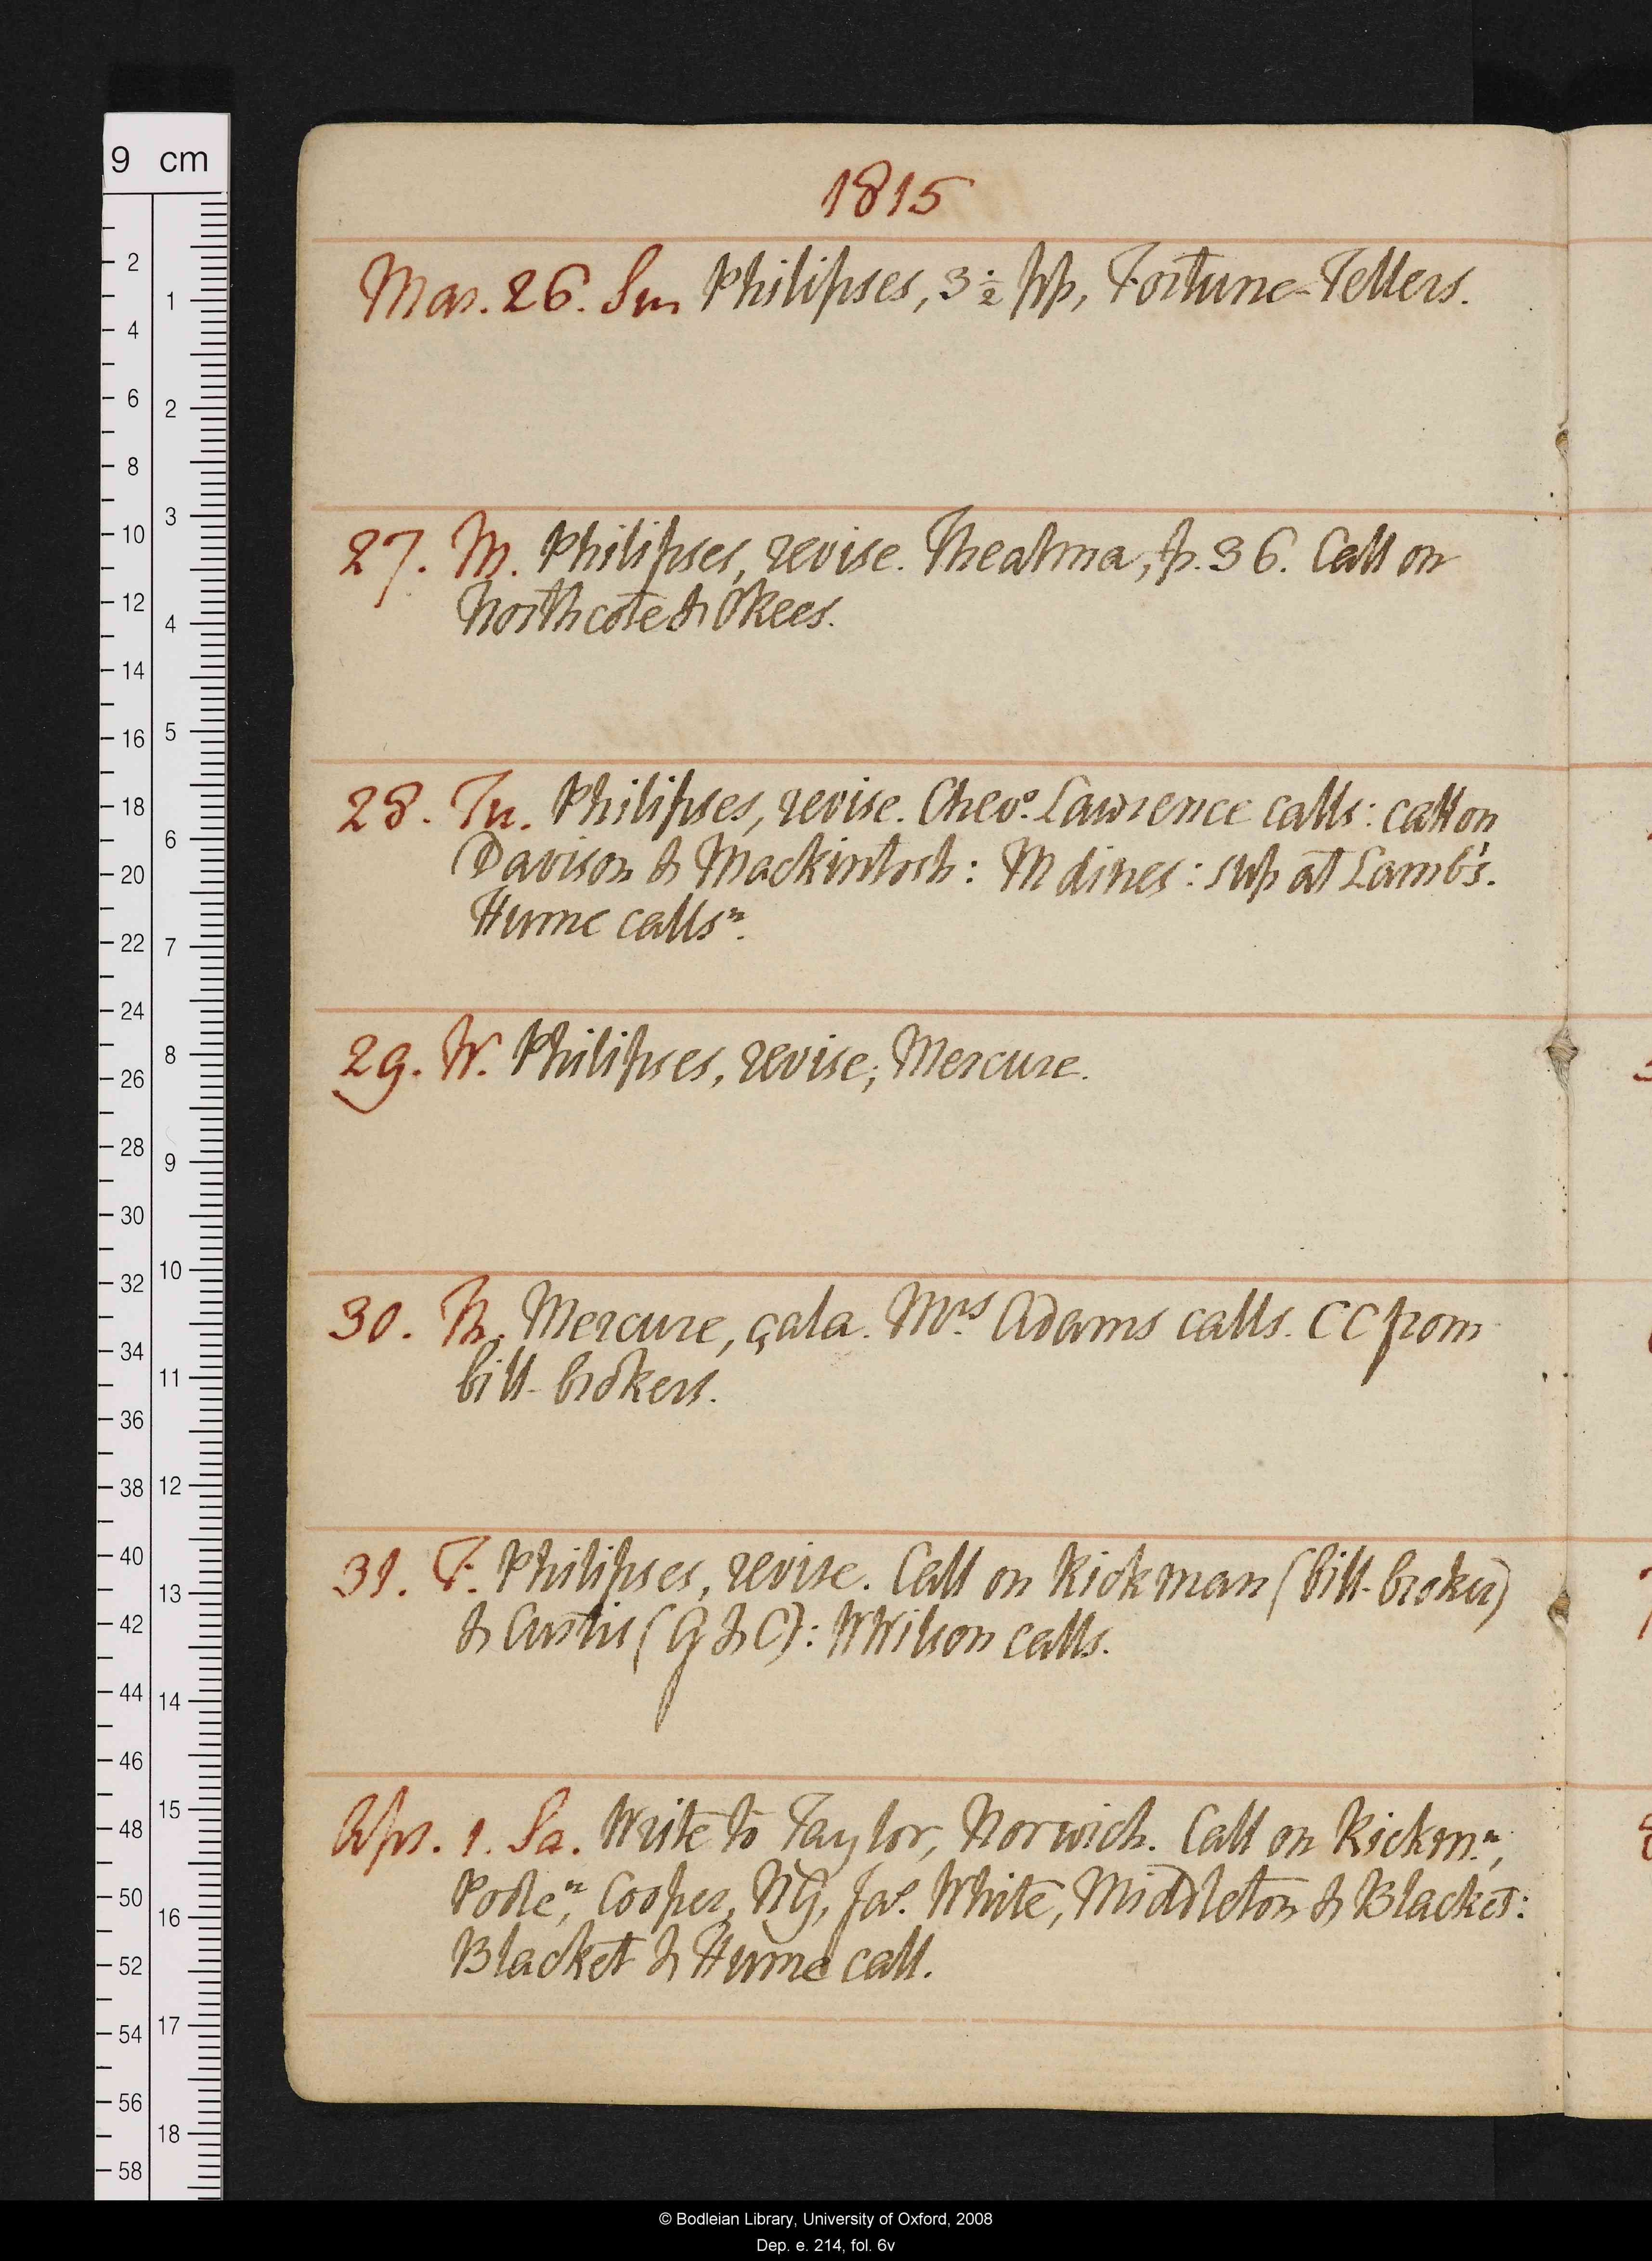 9 cm
1815
Mar. 26. Su. Philipses, 3 1/2 pp, Fortune-Tellers.
27. M. Philipses, revise. Thealma, p. 36. Call on
Northcote & Okees.
28. Tu. Philipses, revise. Chevr. Lawrence calls: call on
Davison & Mackintosh: M dines: sup at Lamb's.
Hume callsn.
29. W. Philipses, revise; Mercure.
30. Th. Mercure, çala. Mrs Adams calls. CC from
bill-brokers.
31. F. Philipses, revise. Call on Rickman (bill-broker)
& Curtis (G & C): W Wilson calls.
Apr. 1. Sa. Write to Taylor, Norwich. Call on Rickmn,
Poolen, Cooper, NG, Jas. White, Middleton & Blacket:
Blacket & Hume call.
© Bodleian Library, University of Oxford, 2008
Dep. e. 214, fol. 6v